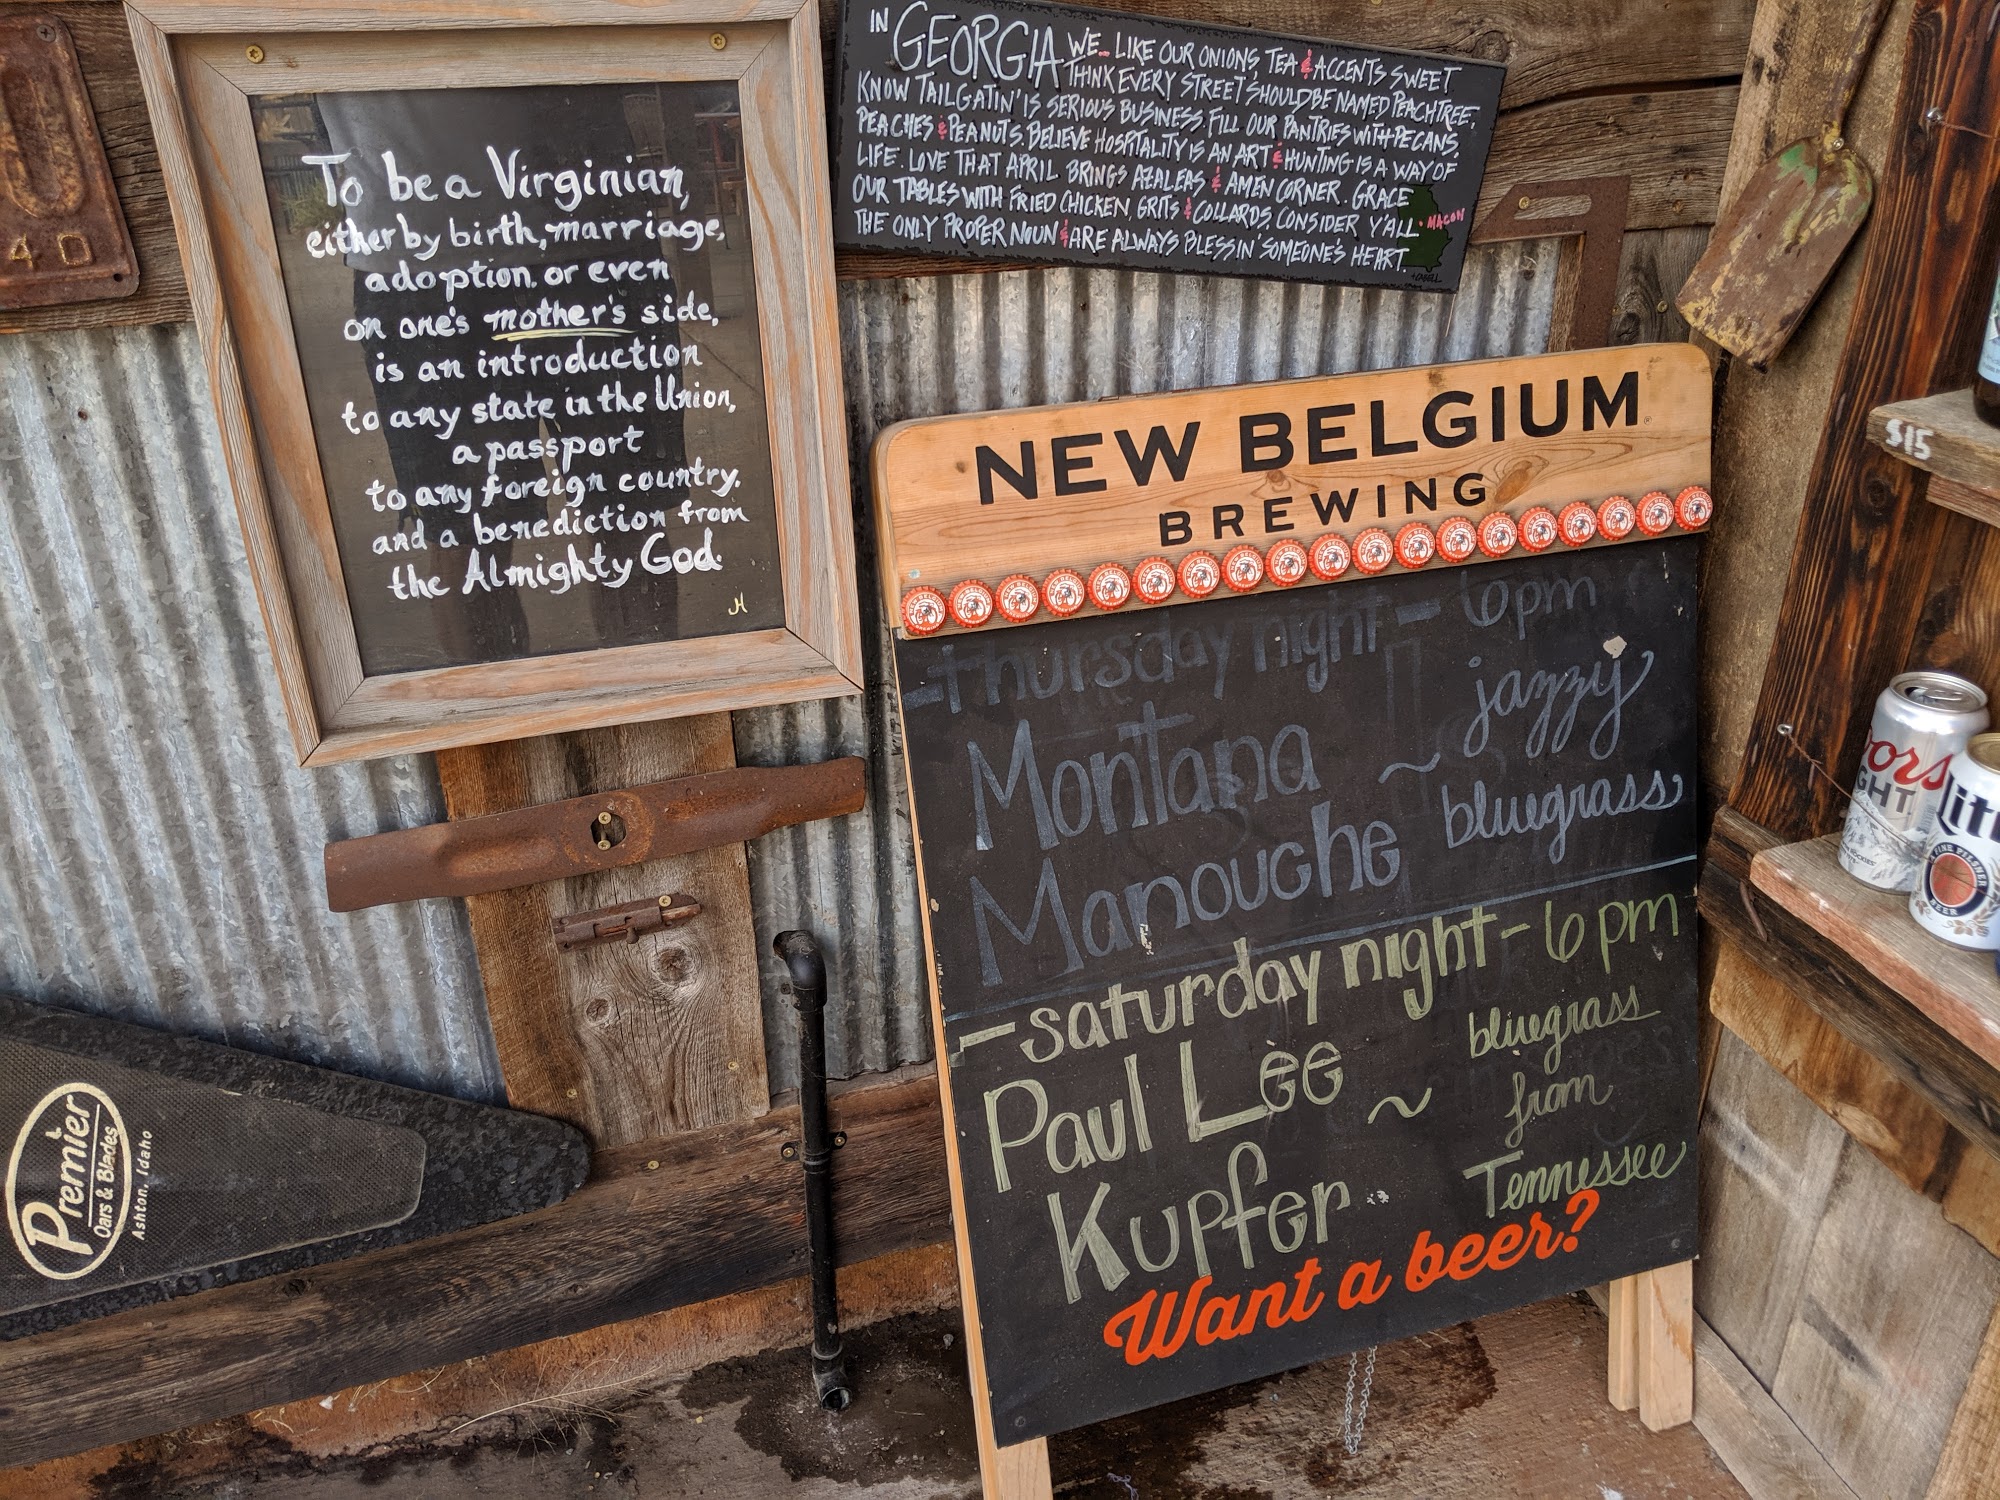 40
To be a Virginian,
either by birth, marriage,
adoption, or even
on one's mother's side,
is an introduction
to any state in the Union,
a passport
to any foreign country,
and a benediction from
the Almighty God.
JH
IN GEORGIA WE LIKE OUR ONIONS, TEA & ACCENTS SWEET
THINK EVERY STREET SHOULD BE NAMED PEACHTREE,
KNOW TAILGATIN' IS SERIOUS BUSINESS. FILL OUR PANTRIES WITH PECANS,
PEACHES & PEANUTS. BELIEVE HOSPITALITY IS AN ART & HUNTING IS A WAY OF
LIFE. LOVE THAT APRIL BRINGS AZALEAS & AMEN CORNER. GRACE
OUR TABLES WITH FRIED CHICKEN, GRITS & COLLARDS. CONSIDER Y'ALL
THE ONLY PROPER NOUN & ARE ALWAYS BLESSIN' SOMEONE'S HEART.
MACON
NEW BELGIUM
BREWING
-thursday night - 6pm
Montana
Manouche
~ jazzy
bluegrass
-saturday night - 6pm
Paul Lee
Kupfer
~ bluegrass
from
Tennessee
Want a beer?
Premier
Oars & Blades
Ashton, Idaho
$15
Coors
LIGHT
Lite
A FINE PILSNER
BEER